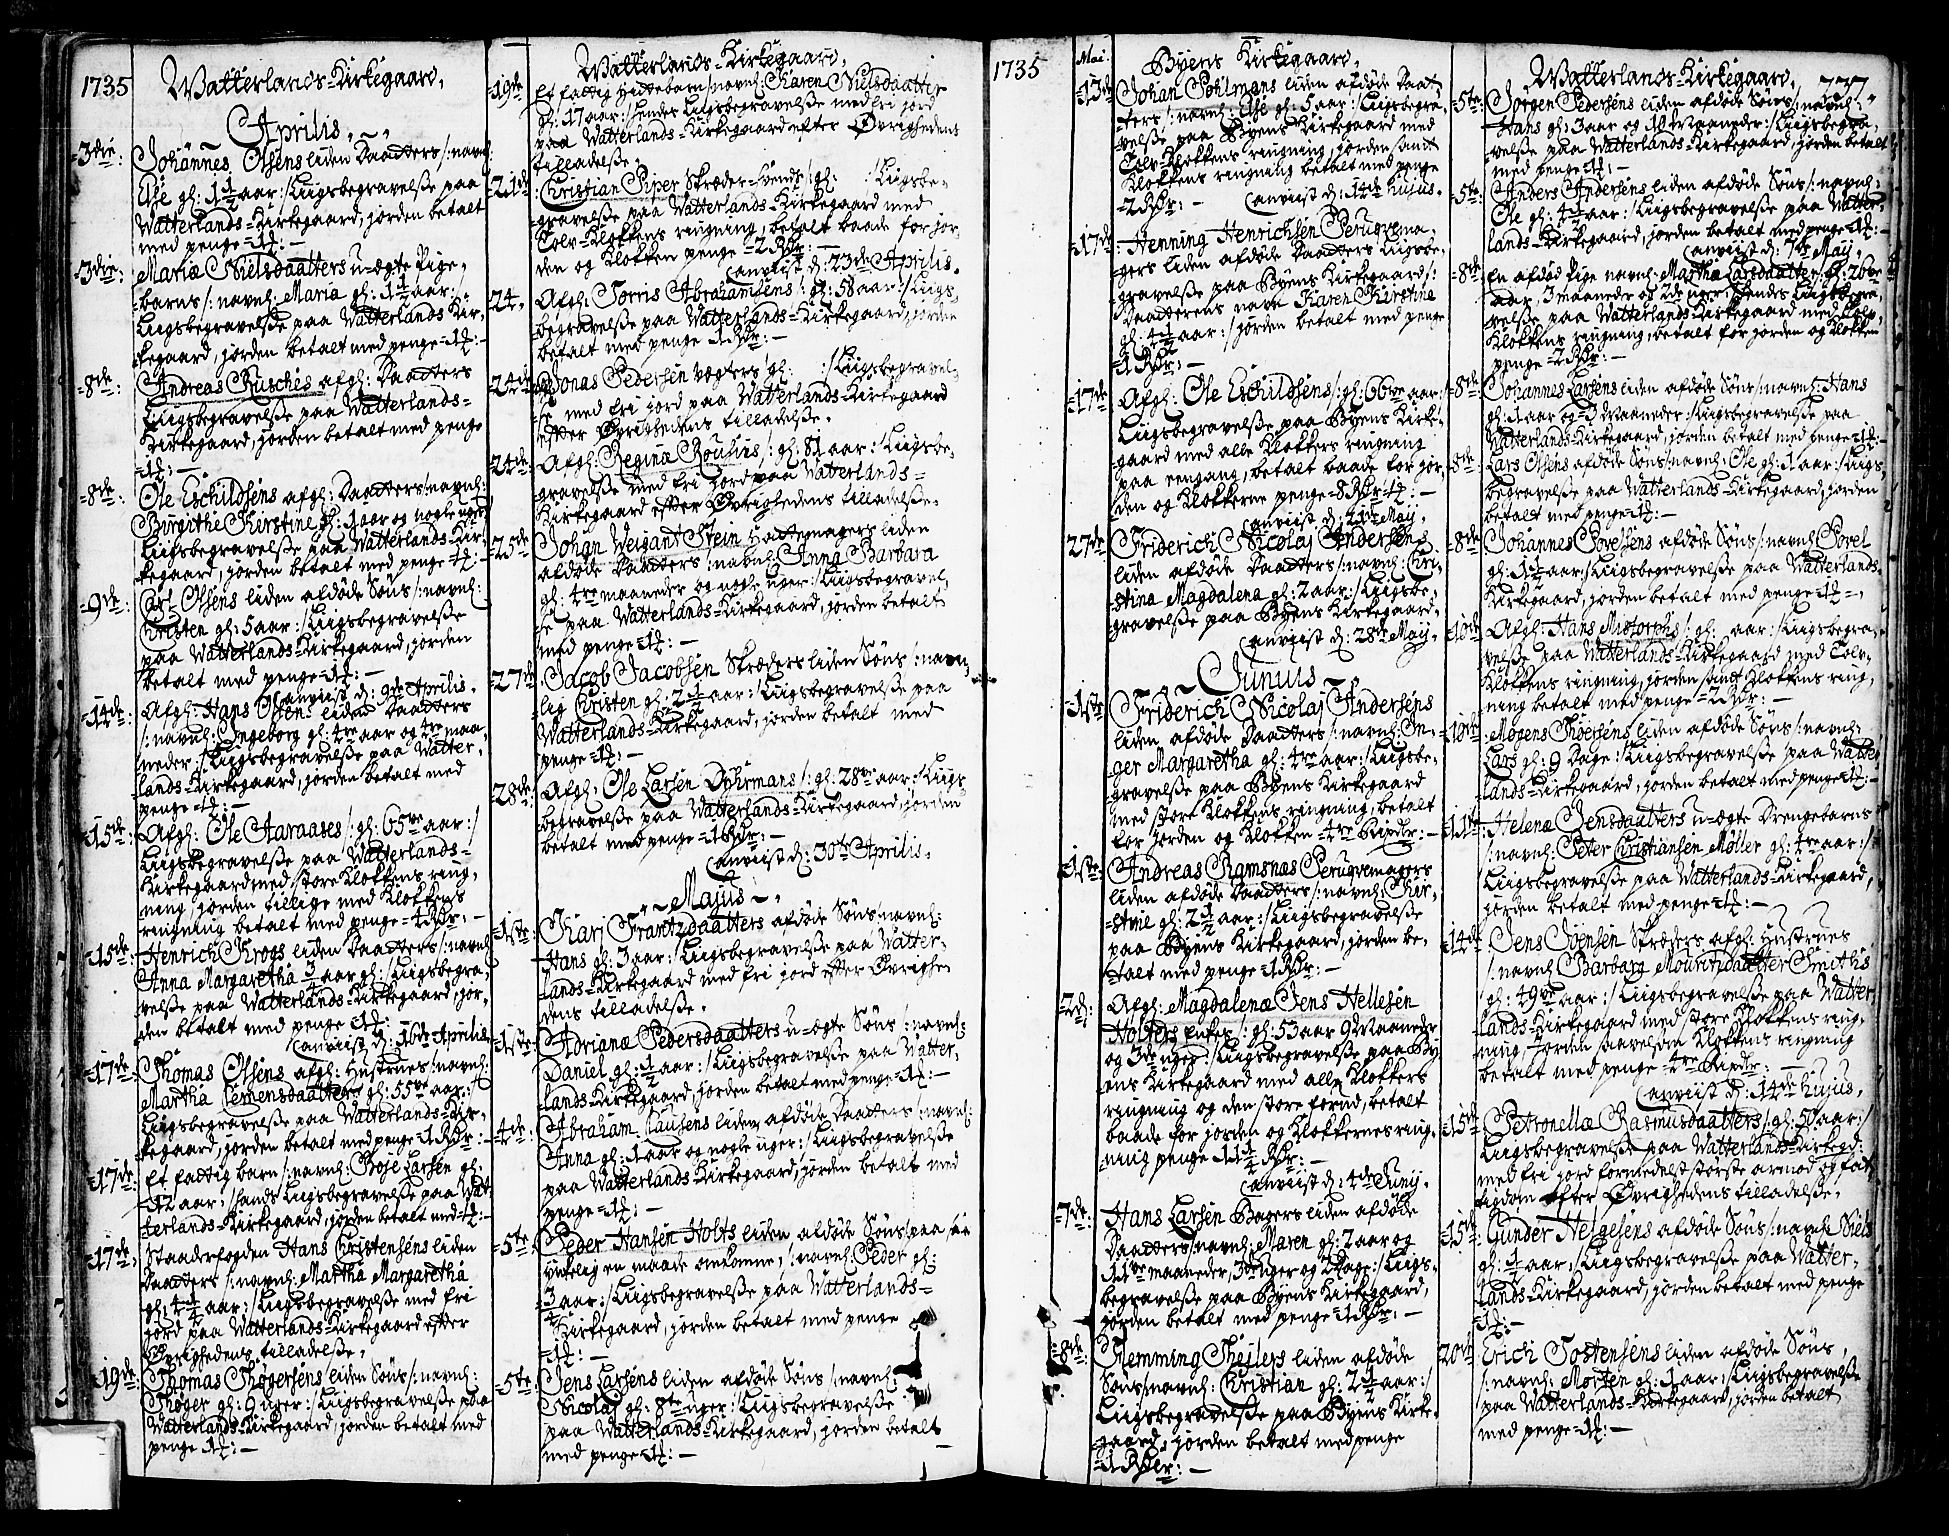 1735
Watterlands-Kirkegaard,
Aprilis,
3die: Johannes Olsens liden Daatters /: navnl:
Else gl: 1½ aar :/ Liigsbegravelsse paa
Watterlands-Kirkegaard, jorden betalt
med penge =1 ʒ: —
3die: Mariæ Nielsdaatters u-ægte Pige-
barns /: navnl: Maria gl: 1½ aar :/
Liigsbegravelsse paa Watterlands Kir-
kegaard, jorden betalt med penge =1 ʒ: —
8de: Andreas Ruschès afgl: Daatters
Liigsbegravelsse paa Watterlands-
Kirkegaard, jorden betalt med penge
=1 ʒ: —
8de: Ole Eschildsens afgl: Daatters /: navnl:
Birgithe Kirstine gl: 1 aar og nogle uger :/
Liigsbegravelsse paa Watterlands-Kir-
kegaard, jorden betalt med penge
9de: Olsens liden afdøde Søns /: navnl:
Christen gl: 5 aar :/ Liigsbegravelsse
paa Watterlands-Kirkegaard, jorden
betalt med penge =1 ʒ: —
anviist d: 9de Aprilis.
14de: Afgl: Hans Olsens liden Daatters
/: navnl: Ingeborg gl: 4re aar og 4re maa-
neder :/ Liigsbegravelsse paa Watter-
lands-Kirkegaard, jorden betalt med
penge =1 ʒ: —
15de: Afgl: Ole Aaraases /: gl: 65ve aar :/
Liigsbegravelsse paa Watterlands-
Kirkegaard med store Klokkens ring-
ning, jorden tillige med Klokkens
ringning betalt med penge =4 Rdr: —
15de: Henrich Krogs liden Daatters /: navnl:
Anna Margaretha ¾ aar gl: :/ Liigsbegra-
velsse paa Watterlands-Kirkegaard, jor-
den betalt med penge =1 ʒ: —
anviist d: 16de Aprilis
17de: Thomas Olsens afgl: Hustrues /: navnl:
Martha Clemensdaatters gl: 55ve aar :/
Liigsbegravelsse paa Watterlands-Kir-
kegaard, jorden betalt med penge =1 Rdr: —
17de: Et fattig barn /: navnl: Boje Larsen gl:
12 aar :/ hands Liigsbegravelsse paa Wat-
terlands-Kirkegaard, jorden betalt med =1 ʒ: —
17de: Staadsfogden Hans Christensens liden
Daatters /: navnl: Martha Margaretha
gl: 4½ aar :/ Liigsbegravelsse med fri
jord paa Watterlands-Kirkegaard efter
Øvrighedens tilladelsse.
19de: Thomas Thøgersens liden Søns /: navnl:
Thøger gl: 9 uger :/ Liigsbegravelsse paa
Watterlands-Kirkegaard, jorden betalt med
penge =1 ʒ: —
Watterlands-Kirkegaard,
19de: Et fattig Hittebarn /: navnl: Karen Nielsdaatter
gl: 17 aar :/ hendes Liigsbegravelsse med fri jord
paa Watterlands-Kirkegaard efter Øvrighedens
tilladelsse.
21de: Christian Piper Skræder-svends /: gl: :/ Liigsbe-
gravelsse paa Watterlands-Kirkegaard med
Tolv-Klokkens ringning, betalt baade for jor-
den og Klokken penge =2 Rdr: —
anviist d: 23de Aprilis.
24. Afgl: Torris Abrahamsens /: gl: 58 aar :/ Liigs-
begravelsse paa Watterlands-Kirkegaard, jorden
betalt med penge =1 Rdr: —
24de: Jonas Pedersen vægters gl: :/ Liigsbegravel-
se med fri jord paa Watterlands-Kirkegaard
efter Øvrighedens tilladelsse.
24de: Afgl: Regina Rousius /: gl: 81 aar :/ Liigsbe-
gravelsse med fri jord paa Watterlands-
Kirkegaard efter Øvrighedens tilladelsse.
25de: Johan Weigant Stein Hattemagers liden
afdøde Daatters /: navnl: Anna Barbara
gl: 4re maaneder og nogle uger :/ Liigsbegravel-
se paa Watterlands-Kirkegaard, jorden betalt
med penge =1 ʒ: —
27de: Jacob Jacobsen Skræders liden Søns /: navn-
lig Christen gl: 2½ aar :/ Liigsbegravelsse paa
Watterlands-Kirkegaard, jorden betalt med
penge =1 ʒ: —
28de: Afgl: Ole Larsen Døhrmans /: gl: 28ve aar :/ Liigs-
begravelsse paa Watterlands-Kirkegaard, jorden
betalt med penge =1 Rdr: —
anviist d: 30te Aprilis.
Majus
1ste: Kari Frantzdaatters afdøde Søns /: navnl:
Hans gl: 3 aar :/ Liigsbegravelsse paa Watter-
lands-Kirkegaard med fri jord efter Øvrighe-
dens tilladelsse.
1ste: Adrianæ Pedersdaatters u-ægte Søns /: navnl:
Daniel gl: ½ aar :/ Liigsbegravelsse paa Watter-
lands-Kirkegaard, jorden betalt med penge =1 ʒ: —
4de: Abraham Clausens liden afdøde Daatters /: navnl:
Anna gl: 1 aar og nogle uger :/ Liigsbegravelsse
paa Watterlands-Kirkegaard, jorden betalt med
penge =1 ʒ: —
5te: Peder Hansen Holts liden afdøde Søns paa
ynkelig en maade omkomne, /: navnl: Peder gl:
¾ aar :/ Liigsbegravelsse paa Watterlands-
Kirkegaard, jorden betalt med penge
=1 ʒ: —
5te: Jens Larsens liden afdøde Søns /: navnl:
Nicolaj gl: 8te uger :/ Liigsbegravelsse
paa Watterlands-Kirkegaard, jorden betalt
med penge =1 ʒ: —
1735
Mai:
Byens Kirkegaard,
13de: Johan Pohlmans liden afdøde Daat-
ters /: navnl: Else gl: 5 aar :/ Liigsbegra-
velsse paa Byens Kirkegaard med
Tolv-Klokkens ringning, jorden samt
Klokkens ringning betalt med penge
=2 Rdr: — anviist d: 14de hujus.
17de: Henning Henrichsen Peruqvema-
gers liden afdøde Daatters Liigsbe-
gravelsse paa Byens Kirkegaard /:
Daatterens navn Karen Kirstine
gl: 4½ aar :/ jorden betalt med penge
=1 Rdr: —
17de: Afgl: Ole Eschildsens /: gl: 66ve aar :/
Liigsbegravelsse paa Byens Kirke-
gaard med alle Klokkers ringning
paa eengang, betalt baade for jor-
den og Klokkerne penge =8 Rdr:
anviist d: 21de Maij.
27de: Friderich Nicolaj Andersens
liden afdøde Daatters /: navnl: Chri-
stina Magdalena gl: 2 aar :/ Liigsbe-
gravelsse paa Byens Kirkegaard.
anviist d: 28de Maij.
Junius
1ste: Friderich Nicolaj Andersens
liden afdøde Daatters /: navnl: In-
ger Margaretha gl: 4re aar :/ Liigsbe-
gravelsse paa Byens Kirkegaard
med store Klokkens ringning, betalt
for jorden og Klokken =4re Rixdr: —
1ste: Andreas Ramsnæs Peruqvemagers
liden afdøde Daatters /: navnl: Chir-
stine gl: 2½ aar :/ Liigsbegravelsse
paa Byens Kirkegaard, jorden be-
talt med penge =1 Rdr: —
2d: Afgl: Magdalenæ Jens Hellesen
Holters Enkes /: gl: 53 aar 9 Maaneder
og 3de uger :/ Liigsbegravelsse paa By-
ens Kirkegaard med alle Klokkers
ringning og den store forud, betalt
baade for jorden og Klokkernes ring-
ning penge 11¼ Rdr: —
anviist d: 4de Junij.
7de: Hans Larsen Bagers liden afdøde
Daatters /: navnl: Maren gl: 2 aar og
11ve maaneder, 3de uger og 2 dage :/ Liigs-
begravelsse paa Byens Kirkegaard,
jorden betalt med penge =1 Rdr: —
8de: Flemming Thejlers liden afdøde
Søns /: navnl: Christian gl: 2½ aar :/
Liigsbegravelsse paa Byens Kirke-
gaard, jorden betalt med penge
=1 Rdr: —
Watterlands-Kirkegaard,
237
5te: Jørgen Pedersens liden afdøde Søns /: navnl:
Hans gl: 3 aar og 10 Maaneder :/ Liigsbegra-
velsse paa Watterlands-Kirkegaard, jorden betalt
med penge =1 ʒ: —
5te: Anders Andersens liden afdøde Søns /: navnl:
Ole gl: 4½ aar :/ Liigsbegravelsse paa Watter-
lands-Kirkegaard, jorden betalt med penge =1 ʒ: —
anviist d: 7de Maij.
8de: En afdød Pige navnl: Martha Larsdaatter gl: 26ve
aar, 3 maaneder og 2de uger, hendes Liigsbegra-
velsse paa Watterlands-Kirkegaard med Tolv-
Klokkens ringning, betalt for jorden og Klokken
penge =2 Rdr: —
8de: Johannes Larsens liden afdøde Søns /: navnl: Hans
gl: 1 aar og 3 Maaneder :/ Liigsbegravelsse paa
Watterlands-Kirkegaard, jorden betalt med penge =1 ʒ: —
8de: Lars Olsens afdøde Søns /: navnl: Ole gl: 1 aar :/ Liigs-
begravelsse paa Watterlands-Kirkegaard, jorden
betalt med penge =1 ʒ: —
8de: Johannes Povelsens afdøde Søns /: navnl: Povel
gl: 1½ aar :/ Liigsbegravelsse paa Watterlands-
Kirkegaard, jorden betalt med penge =1 ʒ: —
10de: Afgl: Hans Mistorphs /: gl: aar :/ Liigsbegra-
velsse paa Watterlands-Kirkegaard med Tolv-
Klokkens ringning, jorden samt Klokkens ring-
ning betalt med penge =2 Rdr: —
10de: Mogens Thoersens liden afdøde Søns /: navnl:
Lars gl: 9 Dage :/ Liigsbegravelsse paa Watter-
lands-Kirkegaard, jorden betalt med penge =1 ʒ: —
11te: Helenæ Jensdaatters u-ægte Drengebarns
/: navnl: Peter Christiansen Møller gl: 4re aar :/
Liigsbegravelsse paa Watterlands-Kirkegaard,
jorden betalt med penge =1 ʒ: —
14de: Jens Joensen Skræders afgl: Hustrues
/: navnl: Barbara Mouritzdaatter Smiths
gl: 49ve aar :/ Liigsbegravelsse paa Watter-
lands-Kirkegaard med store Klokkens ring-
ning, jorden saavelsom Klokkens ringning
betalt med penge =4re Rixdr: —
anviist d: 14de hujus.
15de: Petronellæ Rasmusdaatters /: gl: 50 aar :/
Liigsbegravelsse paa Watterlands-Kirkegd:
med fri jord formedelst største armod og fat-
tigdom efter Øvrighedens tilladelsse.
15de: Gunder Helgesens afdøde Søns /: navnl: Niels
gl: ½ aar :/ Liigsbegravelsse paa Watter-
lands-Kirkegaard, jorden betalt med penge
=1 ʒ: —
20de: Erich Tostensens liden afdøde Søns
/: navnl: Morten gl: 1 aar :/ Liigsbegravelsse
paa Watterlands-Kirkegaard, jorden betalt
med penge =1 ʒ: —